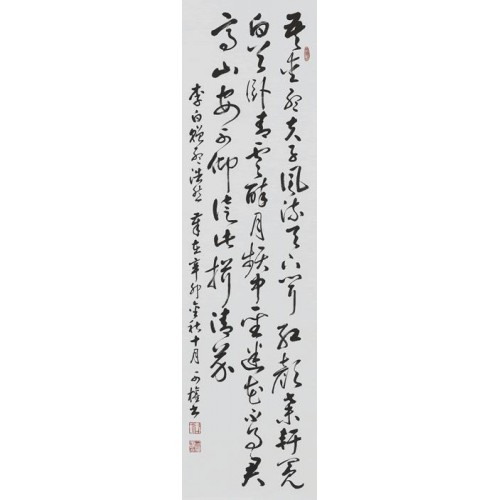 吾爱孟夫子风流天下闻红颜弃轩冕
白首卧青云醉月频中圣迷花不事君
高山安可仰徒此揖清芬
李白赠孟浩然 岁在辛卯金秋十月